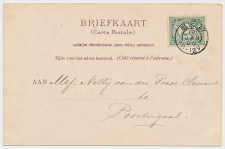 BRIEFKAART
(Carte Postale)
ALGEMEENE POSTVEREENIGING (UNION POSTALE UNIVERSELLE).
Zijde voor het adres bestemd. (Côté réservé à l'adresse.)
AAN Mej. Nelly van der
te
Poortugaal